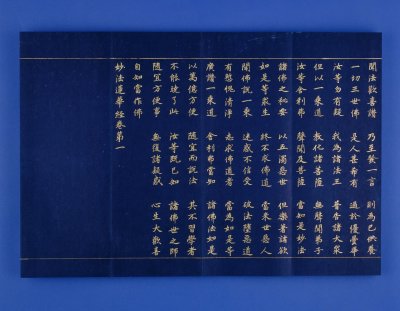 聞法歡喜讚 乃至發一言 則為已供養
一切三世佛 是人甚希有 過於優曇華
汝等勿有疑 我為諸法王 普告諸大眾
但以一乘道 教化諸菩薩 無聲聞弟子
汝等舍利弗 聲聞及菩薩 當知是妙法
諸佛之秘要 以五濁惡世 但樂著諸欲
如是等眾生 終不求佛道 當來世惡人
聞佛說一乘 迷惑不信受 破法墮惡道
有慙愧清淨 志求佛道者 當為如是等
廣讚一乘道 舍利弗當知 諸佛法如是
以萬億方便 隨宜而說法 其不習學者
不能曉了此 汝等既已知 諸佛世之師
隨宜方便事 無復諸疑惑 心生大歡喜
自知當作佛
妙法蓮華經卷第一